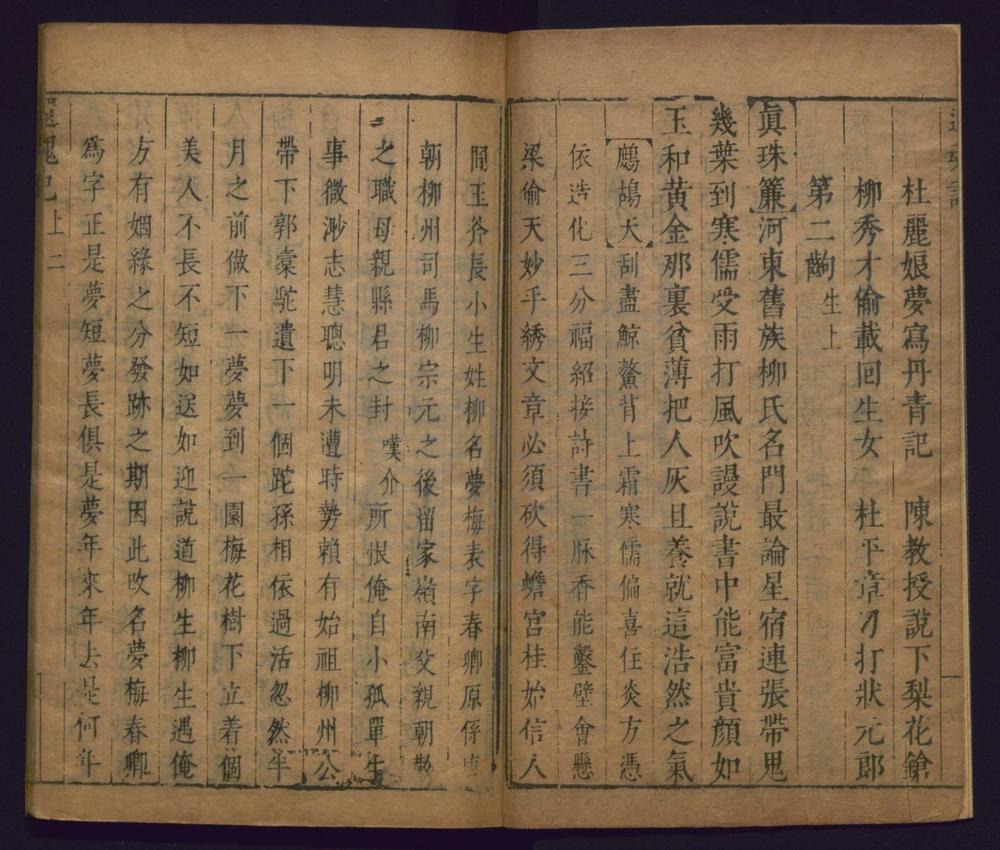 杜麗娘夢寫丹青記　陳教授說下梨花鎗
柳秀才偷載回生女　杜平章刁打狀元郎
第二齣 生上
【真珠簾】河東舊族柳氏名門最論星宿連張帶鬼
幾葉到寒儒受雨打風吹謾說書中能富貴顏如
玉和黃金那裏貧薄把人灰且養就這浩然之氣
【鷓鴣天】刮盡鯨鰲背上霜寒儒偏喜住炎方憑
依造化三分福紹接詩書一脉香能鑿壁會懸
梁偷天妙手綉文章必須砍得蟾宮桂始信人
間玉斧長小生姓柳名夢梅表字春卿原係唐
朝柳州司馬柳宗元之後留家嶺南父親朝散
之職母親縣君之封 嘆介 所恨俺自小孤單生
事微渺志慧聰明未遭時勢賴有始祖柳州公
帶下郭橐駝遺下一個跎孫相依過活忽然半
月之前做下一夢夢到一園梅花樹下立着個
美人不長不短如送如迎說道柳生柳生遇俺
方有姻緣之分發跡之期因此改名夢梅春卿
為字正是夢短夢長俱是夢年來年去是何年
還魂記 上 二